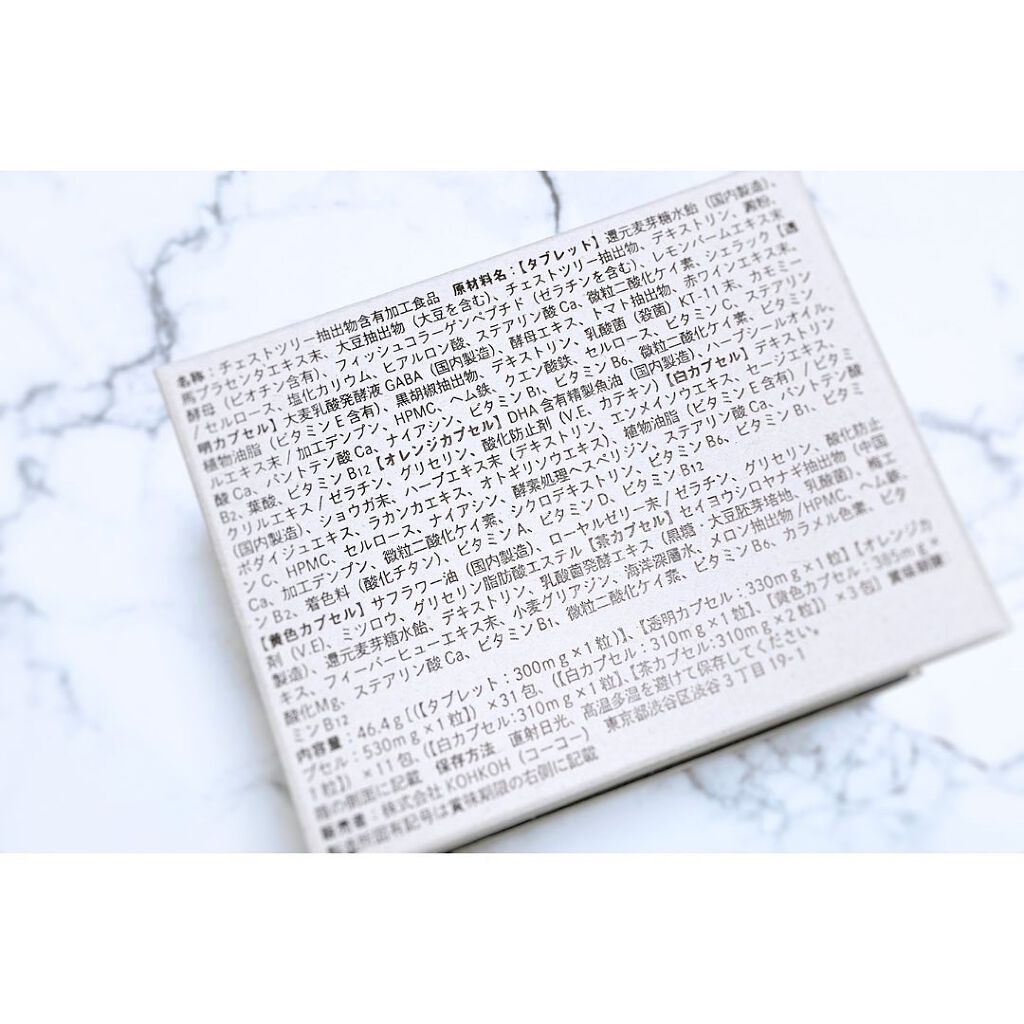 名称：チェストツリー抽出物含有加工食品 原材料名：【タブレット】還元麦芽糖水飴（国内製造）、
馬プラセンタエキス末、大豆抽出物（大豆を含む）、チェストツリー抽出物、デキストリン、澱粉、
酵母（ビオチン含有）、フィッシュコラーゲンペプチド（ゼラチンを含む）、レモンバームエキス末
/ セルロース、塩化カリウム、ヒアルロン酸、ステアリン酸 Ca、微粒二酸化ケイ素、シェラック【透
明カプセル】大麦乳酸発酵液 GABA（国内製造）、酵母エキス、トマト抽出物、赤ワインエキス末、
植物油脂（ビタミン E 含有）、黒胡椒抽出物、デキストリン、乳酸菌（殺菌）KT-11 末、カモミー
ルエキス末 / 加工デンプン、HPMC、ヘム鉄、クエン酸鉄、セルロース、ビタミン C、ステアリン
酸 Ca、パントテン酸 Ca、ナイアシン、ビタミン B₁、ビタミン B₆、微粒二酸化ケイ素、ビタミン
B₂、葉酸、ビタミン B12【オレンジカプセル】DHA 含有精製魚油（国内製造）、ハープシールオイル、
クリルエキス / ゼラチン、グリセリン、酸化防止剤（V.E、カテキン）【白カプセル】デキストリン
（国内製造）、ショウガ末、ハーブエキス末（デキストリン、エンメイソウエキス、セージエキス、
ボダイジュエキス、ラカンカエキス、オトギリソウエキス）、植物油脂（ビタミン E 含有）/ ビタミ
ン C、HPMC、セルロース、ナイアシン、酵素処理ヘスペリジン、ステアリン酸 Ca、パントテン酸
Ca、加工デンプン、微粒二酸化ケイ素、シクロデキストリン、ビタミン B₆、ビタミン B₁、ビタミ
ン B₂、着色料（酸化チタン）、ビタミン A、ビタミン D、ビタミン B12
【黄色カプセル】サフラワー油（国内製造）、ローヤルゼリー末 / ゼラチン、グリセリン、酸化防止
剤（V.E）、ミツロウ、グリセリン脂肪酸エステル【茶カプセル】セイヨウシロヤナギ抽出物（中国
製造）、還元麦芽糖水飴、デキストリン、乳酸菌発酵エキス（黒糖・大豆胚芽培地、乳酸菌）、梅エ
キス、フィーバーヒューエキス末、小麦グリアジン、海洋深層水、メロン抽出物 /HPMC、ヘム鉄、
酸化Mg、ステアリン酸 Ca、ビタミン B₁、微粒二酸化ケイ素、ビタミン B₆、カラメル色素、ビタ
ミン B12
内容量：46.4g［（【タブレット：300mg×1 粒】、【透明カプセル：330mg×1粒】【オレンジカ
プセル：530mg×1 粒】）×31 包、（【白カプセル：310mg×1粒】、【黄色カプセル：385mg×
1 粒】）×11 包、（【白カプセル:310mg×1 粒】、【茶カプセル:310mg×2 粒】）×3 包］ 賞味期限
箱の側面に記載 保存方法 直射日光、高温多湿を避けて保存してください。
販売者：株式会社 KOHKOH（コーコー） 東京都渋谷区渋谷 3 丁目 19-1
製造所固有記号は賞味期限の右側に記載